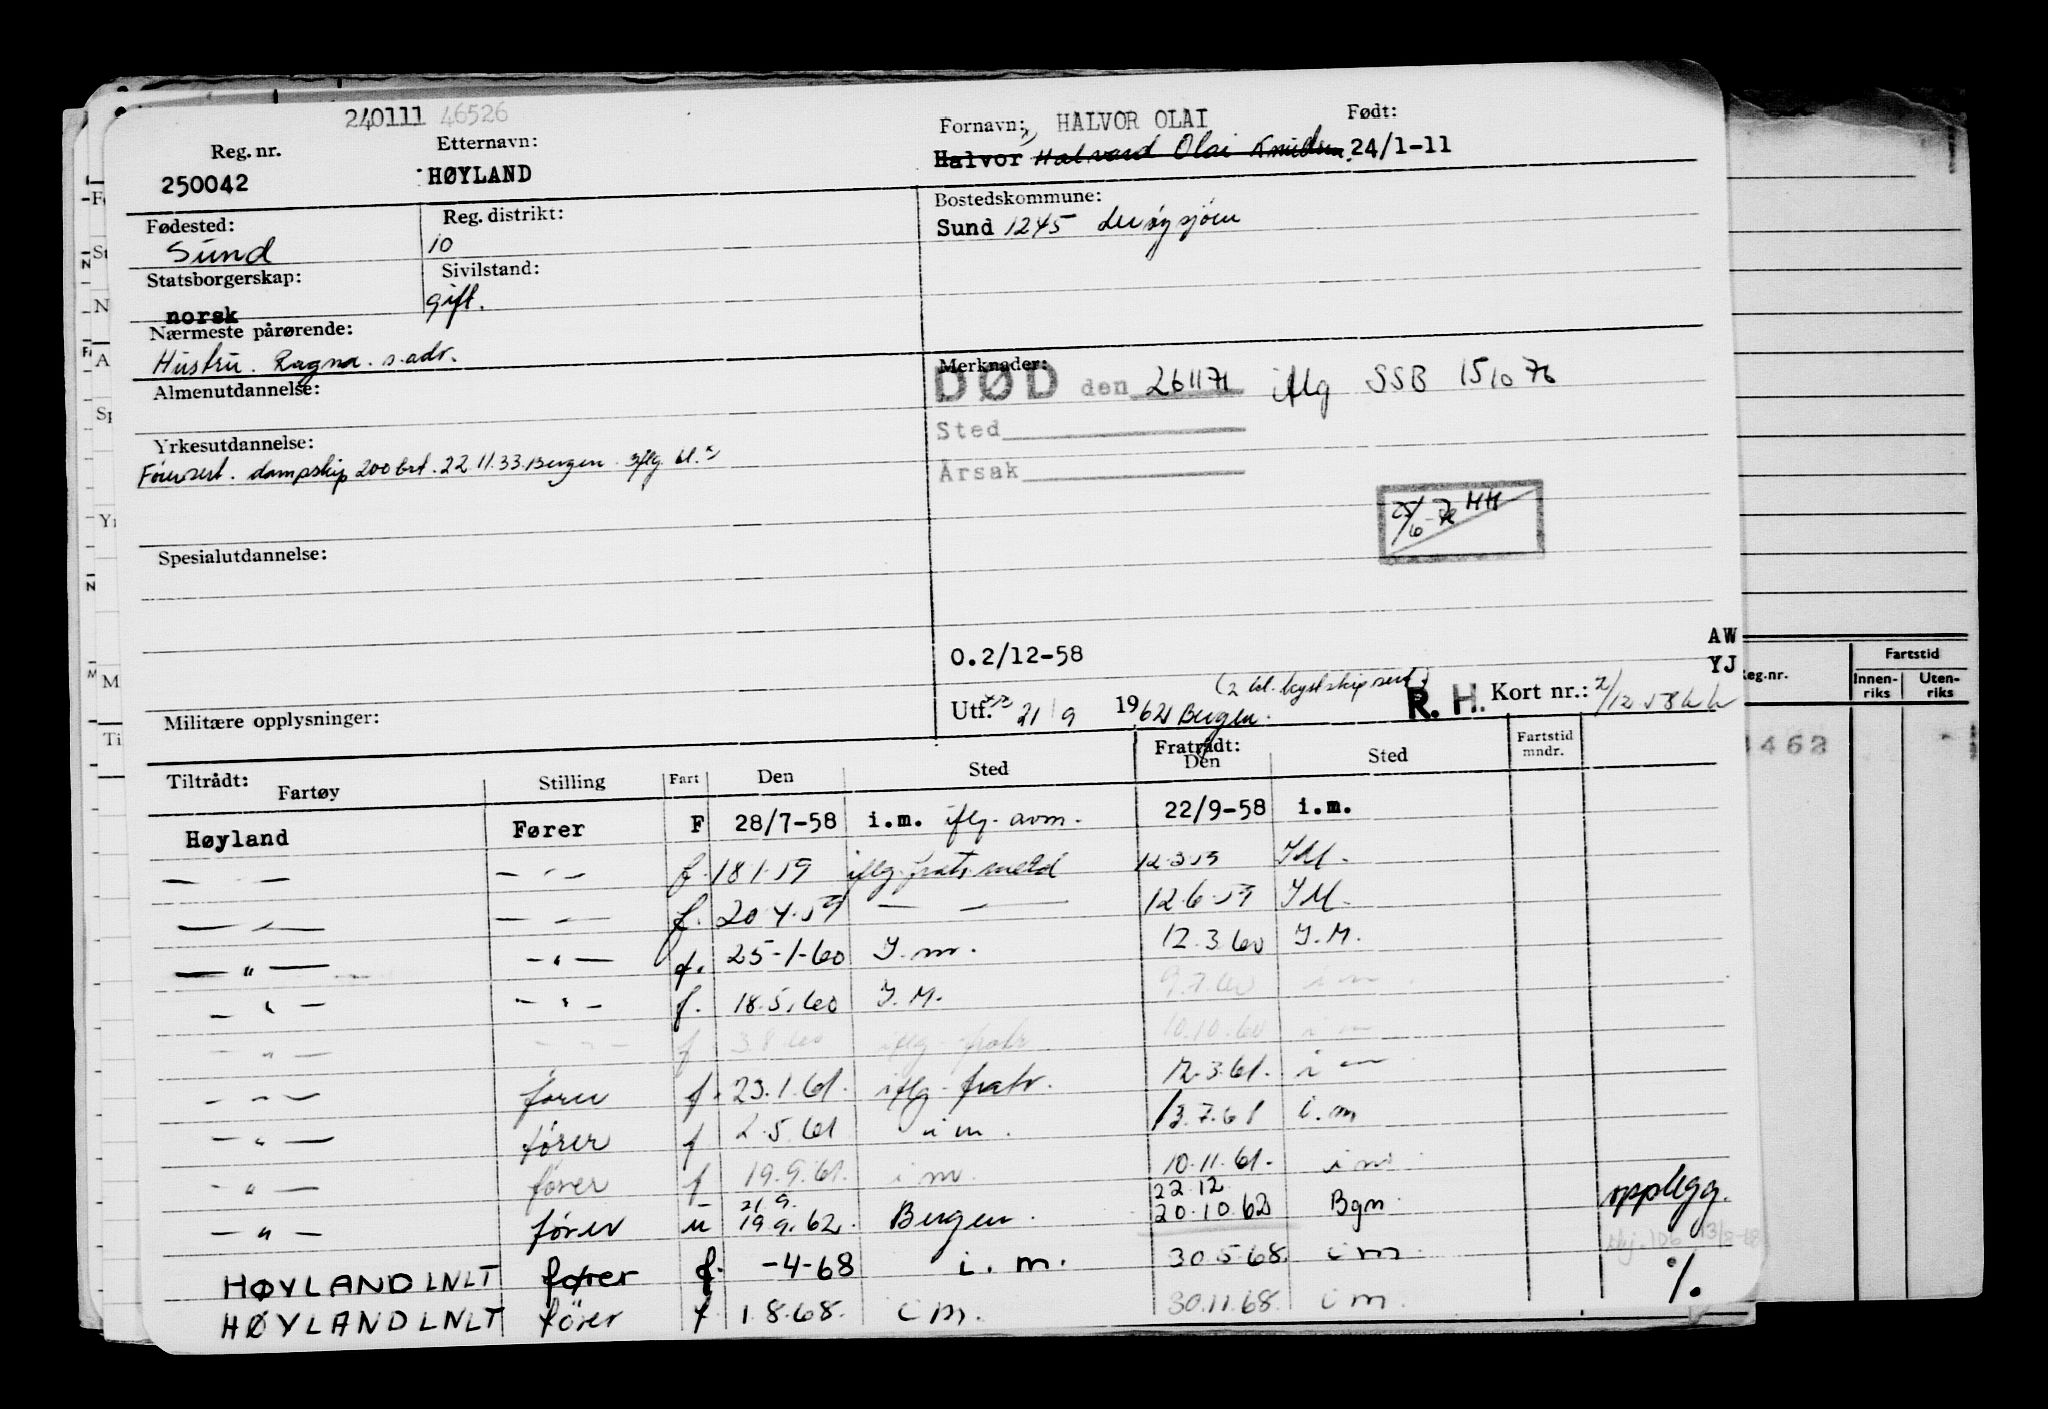 240111 46526
Reg. nr. Etternavn: Fornavn: HALVOR OLAI Født:
250042 HØYLAND Halvor Halvard Olai Knudsen 24/1-11
Fødested: Reg. distrikt: Bostedskommune:
Sund 10 Sund 1245
Statsborgerskap: Sivilstand:
norsk gift.
Nærmeste pårørende:
Hustru. Ragna. s. adr.
Merknader:
DØD den 261171 iflg SSB 15 10 76
Almenutdannelse:
Sted
Yrkesutdannelse:
Førersert. dampskip 200 brt. 22 11.33. Bergen.
Årsak
25/6-76 HH
Spesialutdannelse:
AW
0.2/12-58
YJ
(2 bl. kystskipsert.)
Militære opplysninger: Utf. 21/9 1962 Bergen. R. H. Kort nr.: 2/12 58
Tiltrådt: Fratrådt:
Fartøy Stilling Fart Den Sted Den Sted Fartstid mndr.
Høyland Fører F 28/7-58 i.m. iflg. avm. 22/9-58 i.m.
— " — — " — f. 18.1.59 iflg. fratr. meld 12.3.59 I.M.
— " — — " — f. 20.4.59 — " — 12.6.59 I.M.
— " — — " — f. 25-1-60 I.m. 12.3.60 I.M.
— " — — " — f. 18.5.60 I.M. 9.7.60 i m.
— " — — " — f 3.8.60 iflg. fratr. 10.10.60 i m
— " — fører f. 23.1.61. iflg. fratr. 12.3.61. i m
— " — fører f 2.5.61 i m. 13.7.61 i.m
— " — fører f 19.9.61. i m. 10.11.61. i m
21 9. 22.12
— " — fører u 19 9.62. Bergen. 20.10.62 Bgn opplegg.
HØYLAND LNLT fører f. -4-68 i. m. 30.5.68. i m. %.
HØYLAND LNLT fører f 1.8.68. i m. 30.11.68. i m.
eg.nr. Fartstid
Innen-riks Uten-riks
462